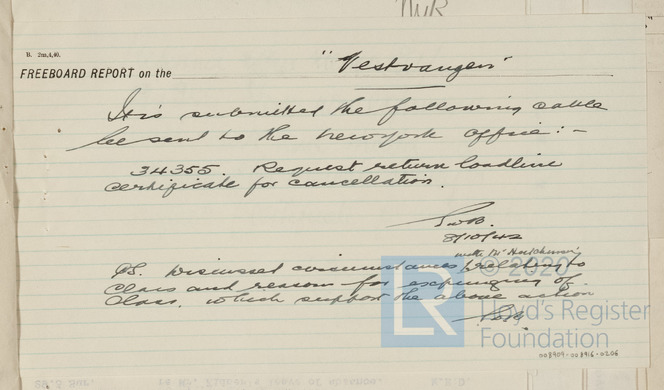 B. 2m,4,40.
FREEBOARD REPORT on the "Vestvangen"
It is submitted the following cable
be sent to the New York office:-
34355. Request return loadline
certificate for cancellation.
8/10/42
with Mr Hutchinson
PS. Discussed circumstances pertaining to
Class and reason for expunging of
Class, which support the above action
© 2020
LR
Lloyd's Register
Foundation
008909-008916-0206